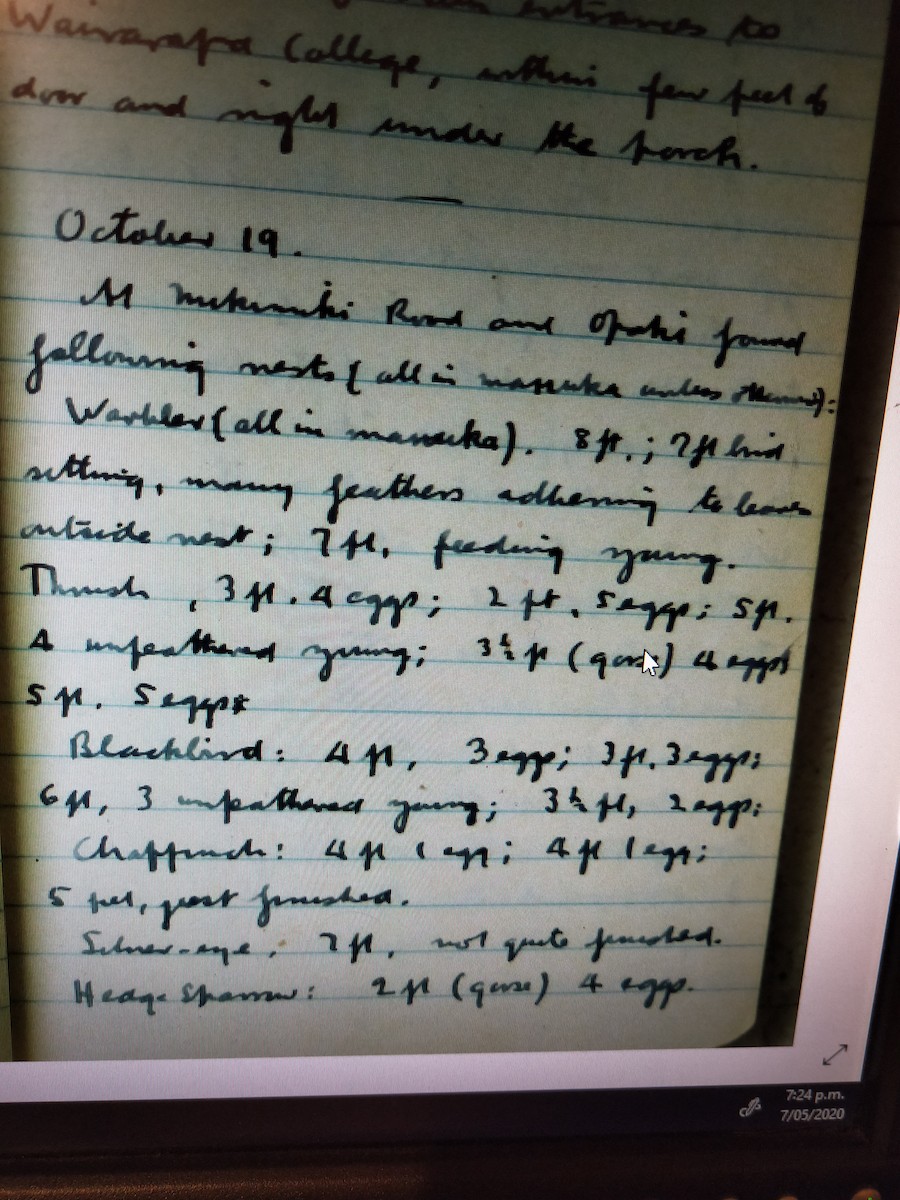 entrances to
Wairarapa College, within few feet of
door and right under the porch.
October 19.
At Road and Opaki found
following nests (all in manuka unless otherwise):
Warbler (all in manuka). 8 ft.; 7 ft bird
sitting, many feathers adhering to leaves
outside nest; 7 ft, feeding young.
Thrush, 3 ft. 4 eggs; 2 ft. 5 eggs; 5 ft.
4 unfeathered young; 3½ ft (gorse) 4 eggs
5 ft. 5 eggs
Blackbird: 4 ft, 3 eggs; 3 ft. 3 eggs;
6 ft, 3 unfeathered young; 3½ ft, 2 eggs:
Chaffinch: 4 ft 1 egg; 4 ft 1 egg;
5 feet, just finished.
Silver-eye, 7 ft, not quite finished.
Hedge Sparrow: 2 ft (gorse) 4 eggs.
7:24 p.m.
7/05/2020